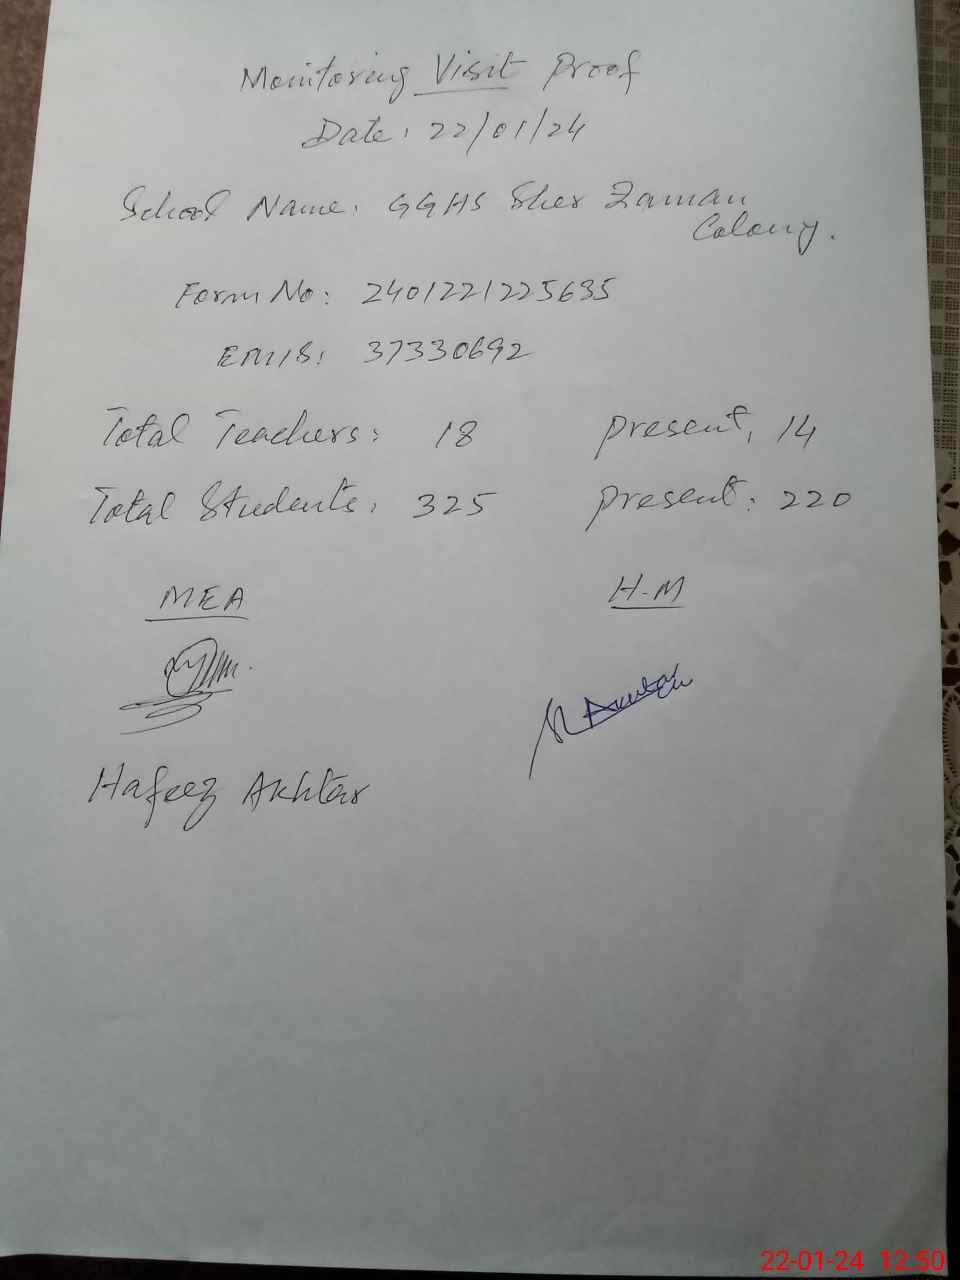 Monitoring Visit Proof
Date: 22/01/24
School Name: GGHS Sher Zaman
Colony.
Form No: 2401221225635
EMIS: 37330692
Total Teachers: 18 present: 14
Total Students: 325 present: 220
MEA H-M
Hafeez Akhtar
22-01-24 12:50